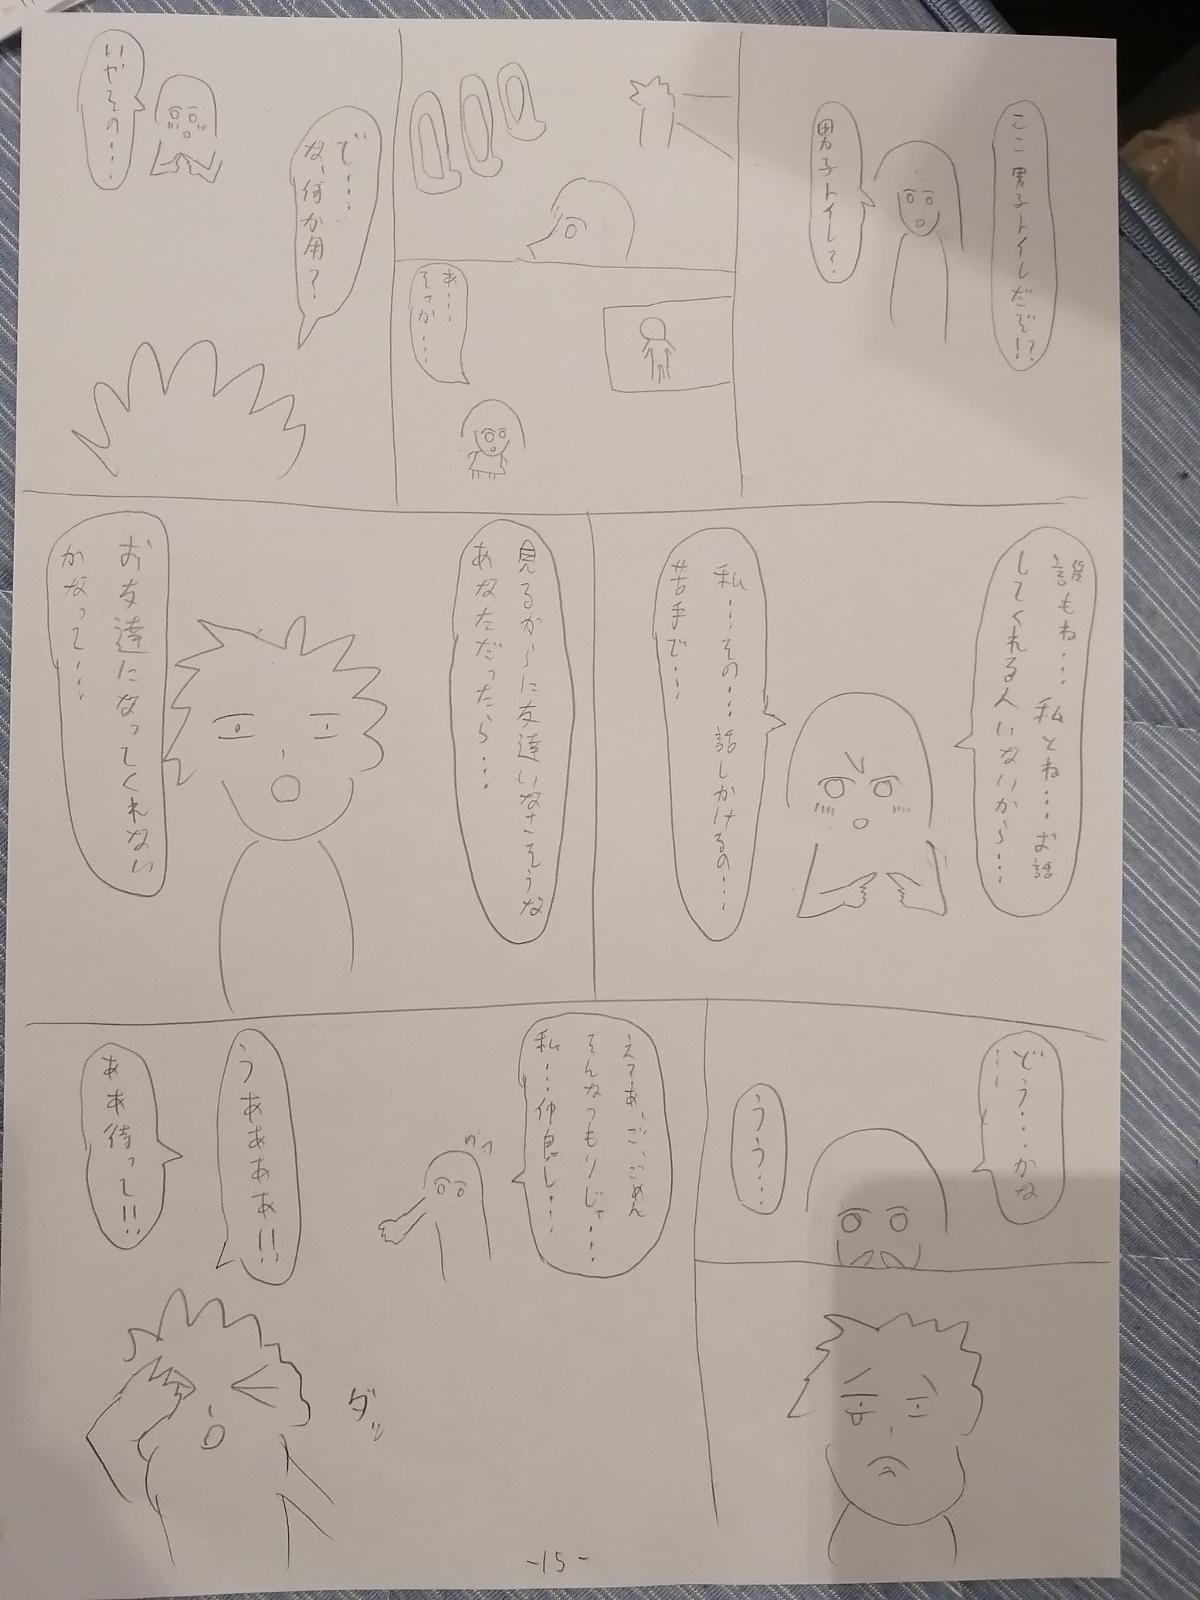 ここ男子トイレだぞ!?
男子トイレ?
あ…
そっか…
で…
な、何か用?
いやその…
誰もね… 私とね…お話
してくれる人いないから…
私…その…話しかけるの…
苦手で…
見るからに友達いなさそうな
あなただったら…
お友達になってくれない
かなって…
どう…かな
…
うう…
えっあ、ご、ごめん
そんなつもりじゃ…
私…仲良し…
うああああ!!
ああ待って!!
ダッ
-15-